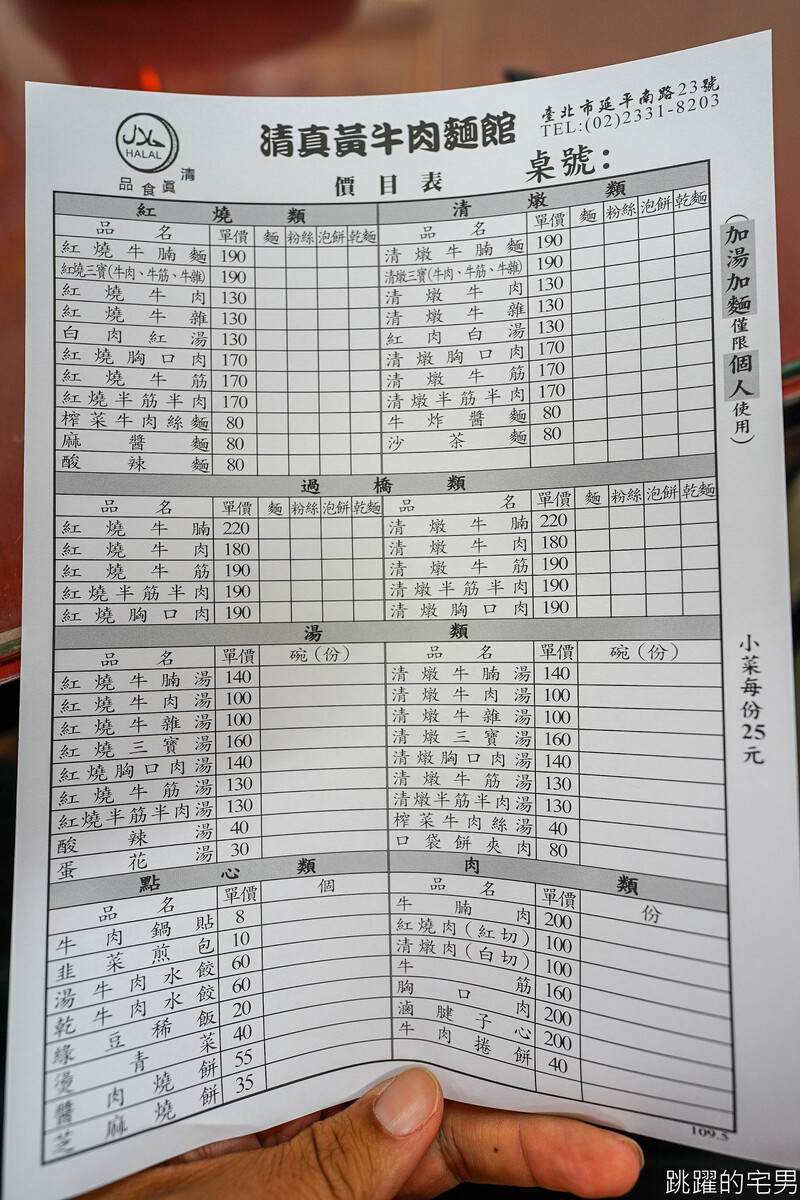 حلال
HALAL
清眞食品
清真黃牛肉麵館
臺北市延平南路23號
TEL:(02)2331-8203
價目表
桌號：
紅燒類
品名 單價 麵 粉絲 泡餅 乾麵
紅燒牛腩麵 190
紅燒三寶(牛肉、牛筋、牛雜) 190
紅燒牛肉 130
紅燒牛雜 130
白肉紅湯 130
紅燒胸口肉 170
紅燒牛筋 170
紅燒半筋半肉 170
榨菜牛肉絲麵 80
麻醬麵 80
酸辣麵 80
清燉類
品名 單價 麵 粉絲 泡餅 乾麵
清燉牛腩麵 190
清燉三寶(牛肉、牛筋、牛雜) 190
清燉牛肉 130
清燉牛雜 130
紅肉白湯 130
清燉胸口肉 170
清燉牛筋 170
清燉半筋半肉 170
牛炸醬麵 80
沙茶麵 80
過橋類
品名 單價 麵 粉絲 泡餅 乾麵
紅燒牛腩 220
紅燒牛肉 180
紅燒牛筋 190
紅燒半筋半肉 190
紅燒胸口肉 190
品名 單價 麵 粉絲 泡餅 乾麵
清燉牛腩 220
清燉牛肉 180
清燉牛筋 190
清燉半筋半肉 190
清燉胸口肉 190
湯類
品名 單價 碗(份)
紅燒牛腩湯 140
紅燒牛肉湯 100
紅燒牛雜湯 100
紅燒三寶湯 160
紅燒胸口肉湯 140
紅燒牛筋湯 130
紅燒半筋半肉湯 130
酸辣湯 40
蛋花湯 30
品名 單價 碗(份)
清燉牛腩湯 140
清燉牛肉湯 100
清燉牛雜湯 100
清燉三寶湯 160
清燉胸口肉湯 140
清燉牛筋湯 130
清燉半筋半肉湯 130
榨菜牛肉絲湯 40
口袋餅夾肉 80
點心類
品名 單價 個
牛肉鍋貼 8
韭菜煎包 10
湯牛肉水餃 60
乾牛肉水餃 60
綠豆稀飯 20
燙青菜 40
醬肉燒餅 55
芝麻燒餅 35
肉類
品名 單價 份
牛腩肉 200
紅燒肉(紅切) 100
清燉肉(白切) 100
牛筋 160
胸口肉 200
滷腱子心 200
牛肉捲餅 40
(加湯加麵僅限個人使用)
小菜每份25元
109.5
跳躍的宅男